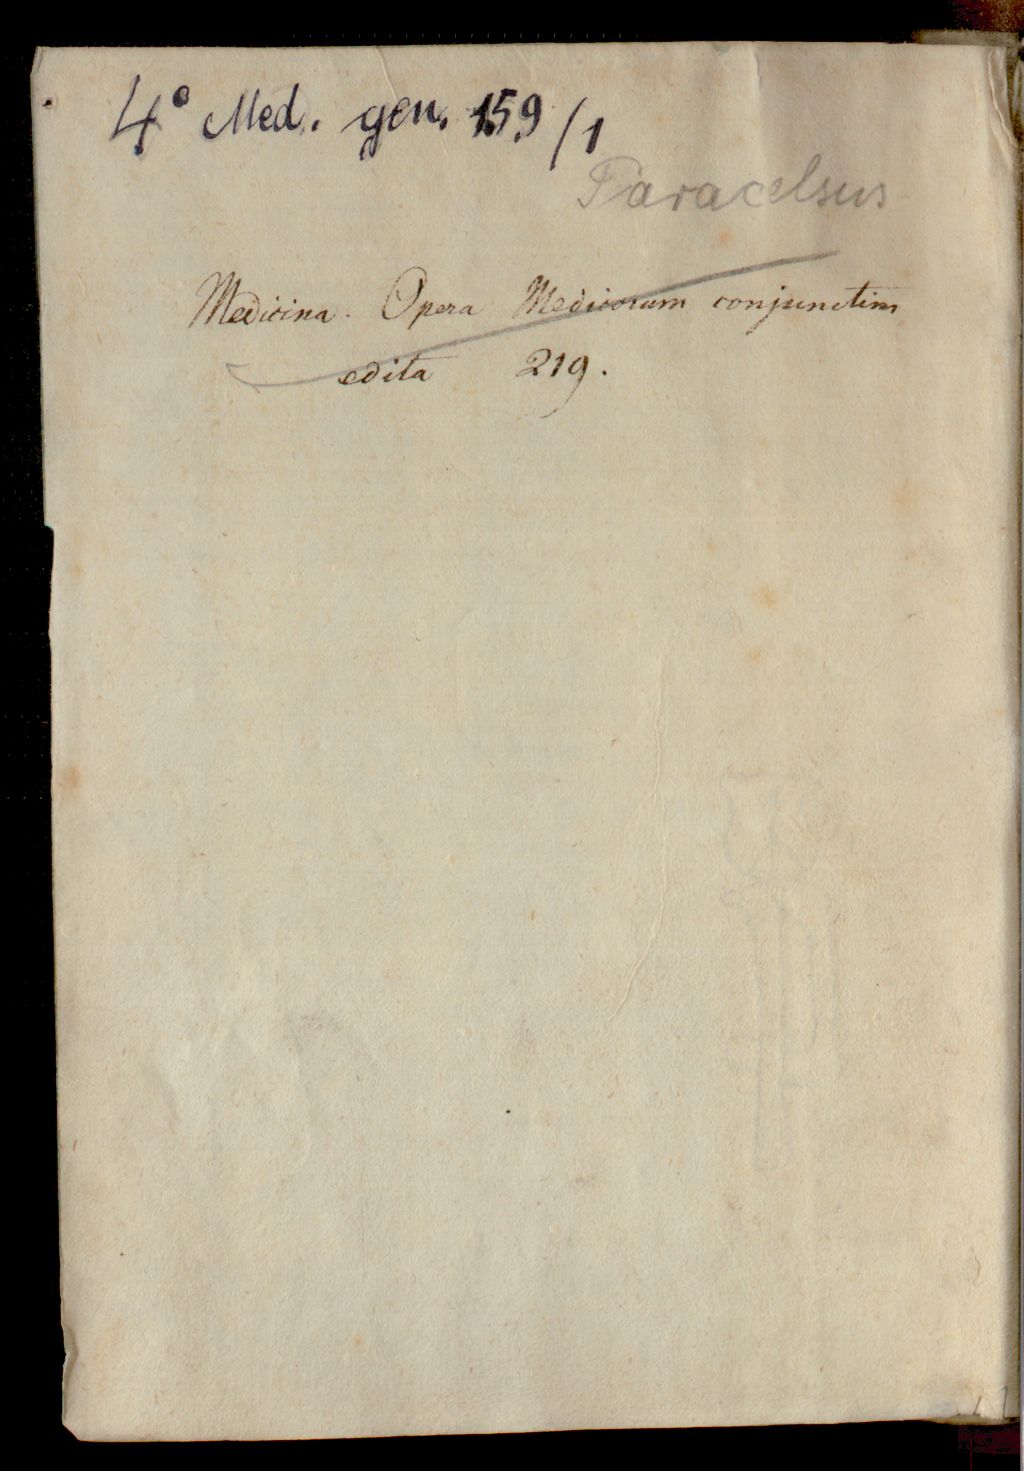 4° Med. gen. 159/1
Paracelsus
Medicina. Opera Medicorum conjunctim
edita 219.